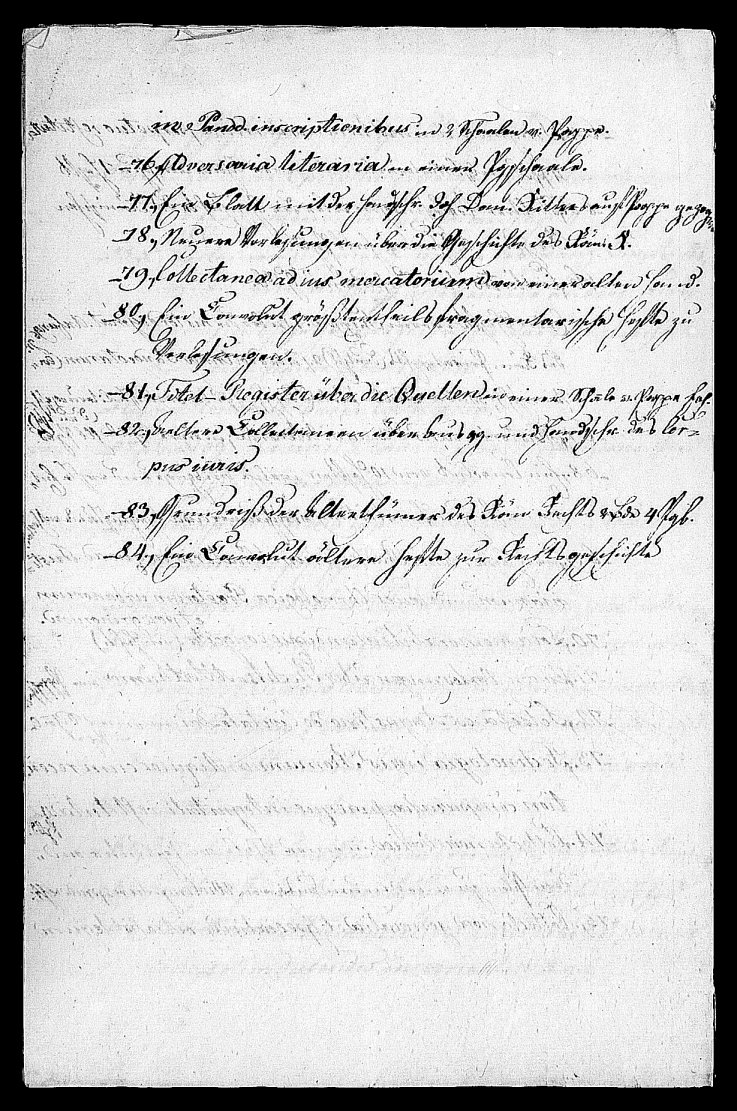 in Pand. inscriptionibus in 2 Schaalen v. Pappe.
76, Adversaria literaria in einer Pgschaale.
77, Ein Blatt mit der Handschr. Joh. Dan. Ritters auf Pappe gezogen
78, Neuere Vorlesungen über die Geschichte des Röm. R.
79, Collectanea ad ius mercatorium von einer alten Hand.
80, Ein Convolut größtentheils fragmentarische Hefte zu
Vorlesungen.
81, Titel-Register über die Quellen in einer Schale v. Pappe
82, aeltere Collectaneen über Ausgg. und Handschr. des Cor-
pus iuris.
83, Grundriß der Alterthümer des Röm Rechts 2 Bde 4 Pgb.
84, Ein Convolut ältere Hefte zur Rechtsgeschichte